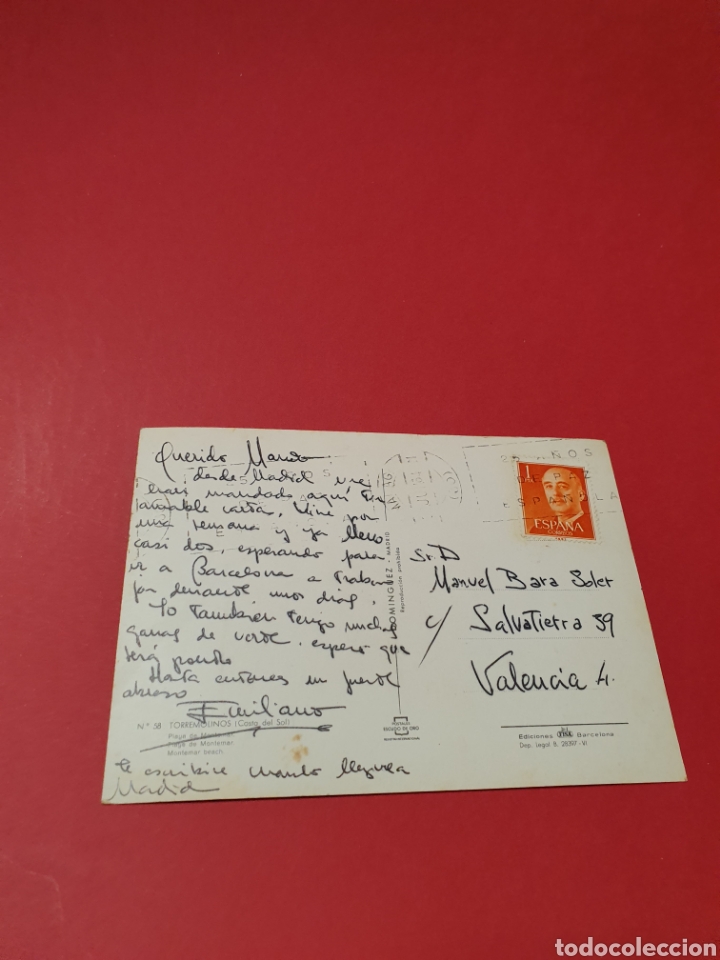 Querido Manolo
desde Madrid me
han mandado aquí tu
amable carta, Vine por
una semana y ya llevo
casi dos, esperando para
ir a Barcelona a trabajar
por unos días.
Yo también tengo muchas
ganas de verte, espero que
será pronto
Hasta entonces un fuerte
abrazo
Emiliano
Nº 58 TORREMOLINOS (Costa del Sol)
Playa de Montemar
Plage de Montemar
Montemar beach
te escribiré cuando llegue a
Madrid
DOMINGUEZ - MADRID
Reproducción prohibida
25 AÑOS
DE PAZ
ESPAÑOLA
1
ESPAÑA
CORREOS
Sr. D
Manuel Bara Soler
c/ Salvatierra 39
Valencia 4.
ESCUDO DE ORO
Ediciones Barcelona
Dep. Legal B. 26397-VI
todocoleccion